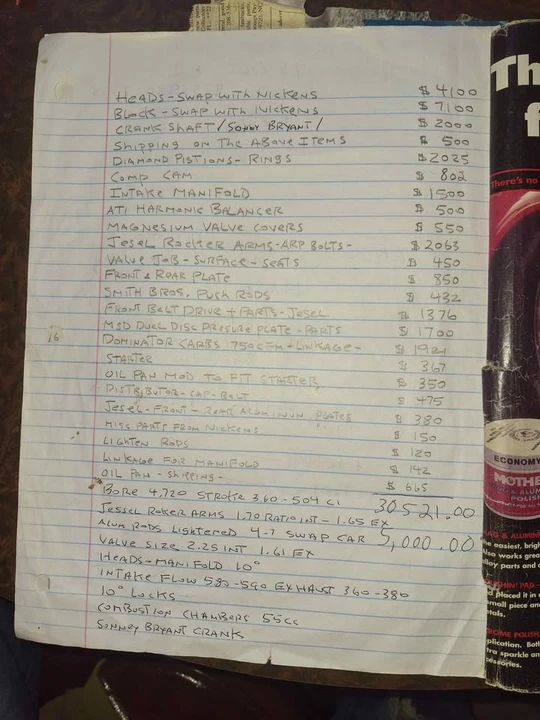 HEADS-SWAP WITH NICKENS $ 4100
BLOCK-SWAP WITH NICKENS $ 7100
CRANK SHAFT/SONNY BRYANT/ $ 2000
SHIPPING ON THE ABOVE ITEMS $ 500
DIAMOND PISTIONS-RINGS $ 2025
COMP CAM $ 802
INTAKE MANIFOLD $ 1500
ATI HARMONIC BALANCER $ 500
MAGNESIUM VALVE COVERS $ 550
JESEL ROCKTER ARMS-ARP BOLTS- $ 2063
VALVE JOB-SURFACE-SEATS $ 450
FRONT & REAR PLATE $ 850
SMITH BROS. PUSH RODS $ 432
FRONT BELT DRIVE + PARTS-JESEL $ 1376
MSD DUEL DISC PRESURE PLATE-PARTS $ 1700
DOMINATOR CARBS 750CFM-LINKAGE- $ 1921
STARTER $ 367
OIL PAN MOD TO FIT STARTER $ 350
DISTRIBUTOR-CAP-BOLT $ 475
JESEL-FRONT-REAR ALUMINUM PLATES $ 380
MISC PARTS FROM NICKENS $ 150
LIGHTEN RODS $ 120
LINKAGE FOR MANIFOLD $ 142
OIL PAN-SHIPPING- $ 665
30521.00
BORE 4.720 STROKE 360-504 CI
JESSEL ROKER ARMS 1.70 RATIO INT-1.65 EX
ALUM RODS LIGHTERED 4-7 SWAP CAR 5,000.00
VALVE SIZE 2.25 INT 1.61 EX
HEADS-MANIFOLD 10°
INTAKE FLOW 580-590 EXHAUST 360-380
10° LOCKS
COMBUSTION CHAMBERS 55CC
SONNEY BRYANT CRANK
16
Th
f
There's no
ECONOMY
MOTHE
& ALUM
POLIS
MAG & ALUMIN
easiest, brigh
Also works grea
alloy parts and
placed it in
small piece and
CHROME POLISH
plication. Both
tra sparkle an